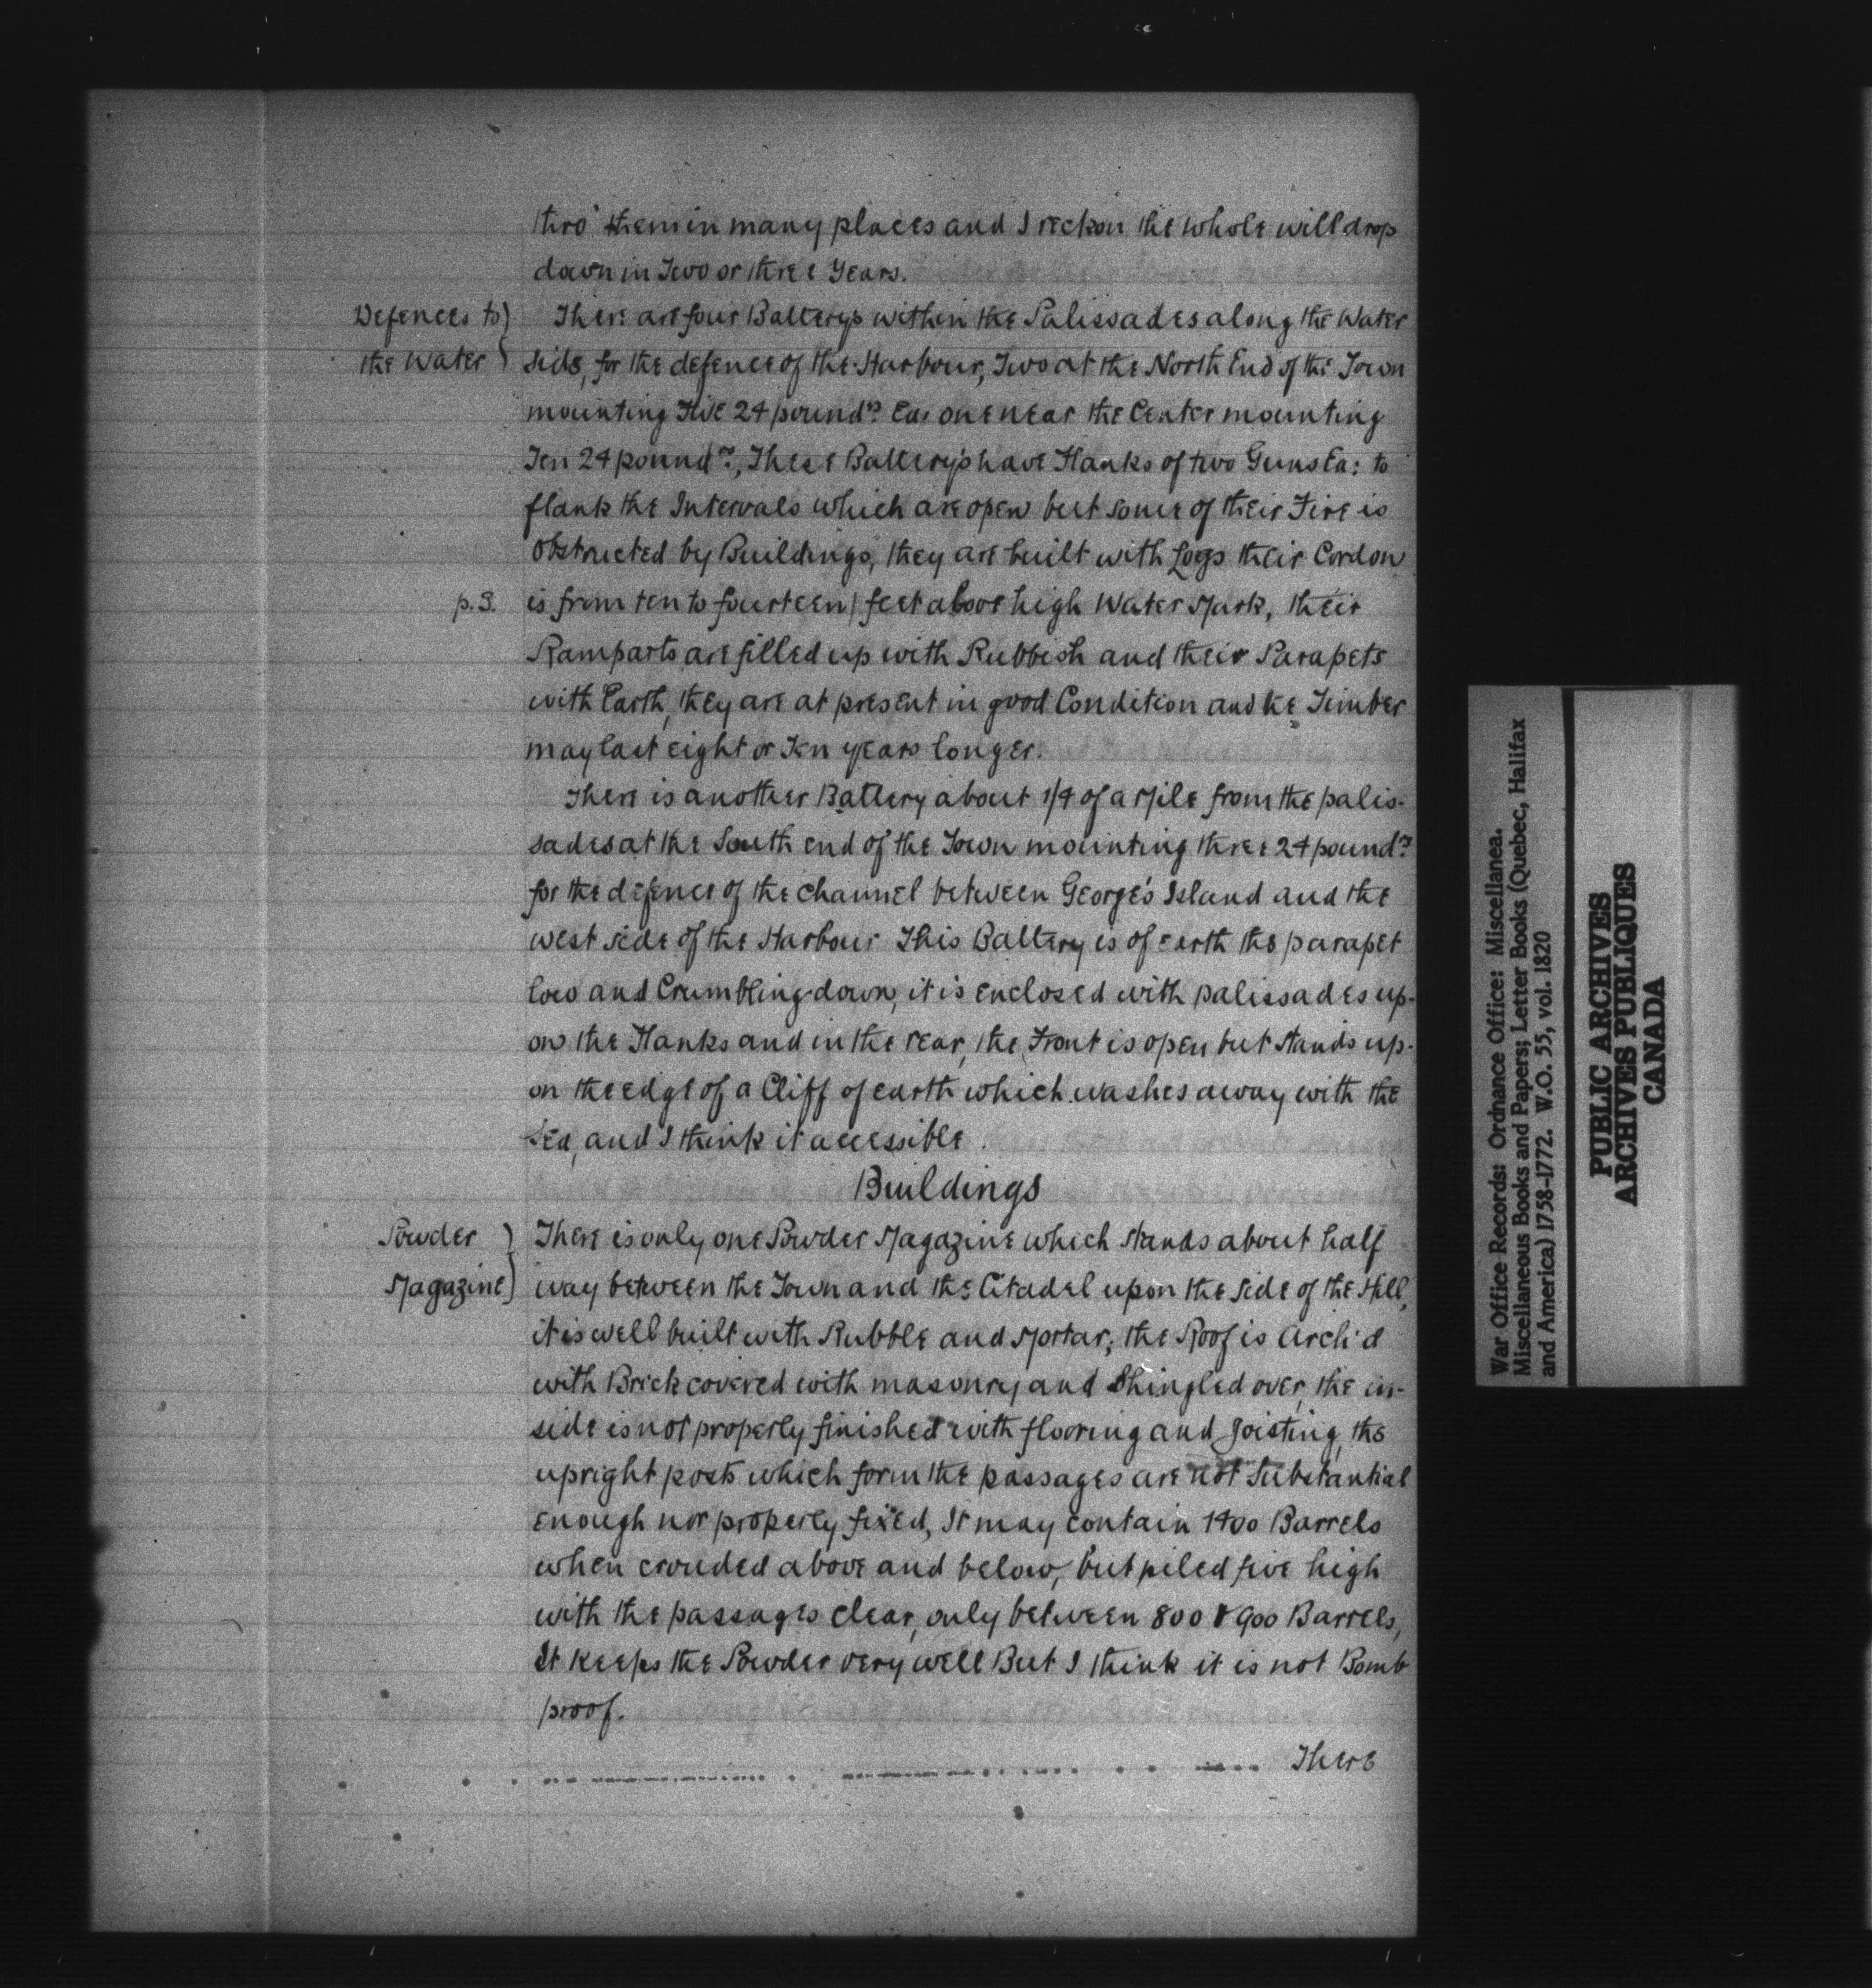 thro' them in many places and I reckon the whole will drop
down in Two or three Years.
Defences to the Water
There are four Batterys within the Palissades along the Water
side, for the defence of the Harbour, Two at the North End of the Town
mounting Five 24 pound.rs Ea: one near the Center mounting
Ten 24 pound.rs, These Battery's have Flanks of two Guns Ea: to
flank the Intervals which are open but some of their Fire is
Obstructed by Buildings, they are built with Logs their Cordon
p. 3. is from ten to fourteen/ feet above high Water Mark, their
Ramparts are filled up with Rubbish and their Parapets
with Earth, they are at present in good Condition and the Timber
may last eight or Ten years longer.
There is another Battery about 1/4 of a Mile from the palis-
sades at the South end of the Town mounting three 24 pound.rs
for the defence of the channel between George's Island and the
west side of the Harbour This Battery is of earth the parapet
low and Crumbling down, it is enclosed with palissades up-
on the Flanks and in the rear, the Front is open but stands up-
on the edge of a Cliff of earth which washes away with the
Sea, and I think it accessible.
Buildings
Powder Magazine
There is only one Powder Magazine which stands about half
way between the Town and the Citadel upon the side of the Hill,
it is well built with Rubble and Mortar, the Roof is Arch'd
with Brick covered with masonry and Shingled over, the in-
side is not properly finished with flooring and Joisting, the
upright posts which form the passages are not Substantial
enough nor properly fixed, It may contain 1400 Barrels
when crouded above and below, but piled five high
with the passages clear, only between 800 & 900 Barrels,
It keeps the Powder very well But I think it is not Bomb
proof.
There
War Office Records: Ordnance Office: Miscellanea.
Miscellaneous Books and Papers; Letter Books (Quebec, Halifax
and America) 1758-1772. W.O. 55, vol. 1820
PUBLIC ARCHIVES
ARCHIVES PUBLIQUES
CANADA